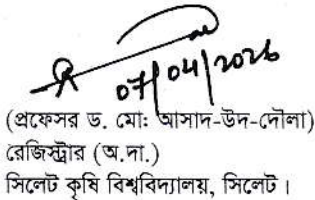 07/04/2026
(প্রফেসর ড. মোঃ আসাদ-উদ-দৌলা)
রেজিস্ট্রার (অ.দা.)
সিলেট কৃষি বিশ্ববিদ্যালয়, সিলেট।